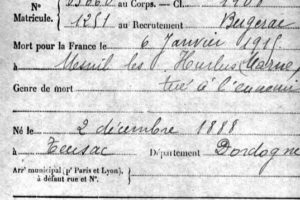 N° 05660 au Corps. — Cl. 1908
Matricule. 1251 au Recrutement Bergerac
Mort pour la France le 6 Janvier 1915
à Mesnil les Hurlus (Marne)
Genre de mort tué à l'ennemi
Né le 2 décembre 1888
à Département Dordogne
Arr' municipal (p' Paris et Lyon),
à défaut rue et N°.